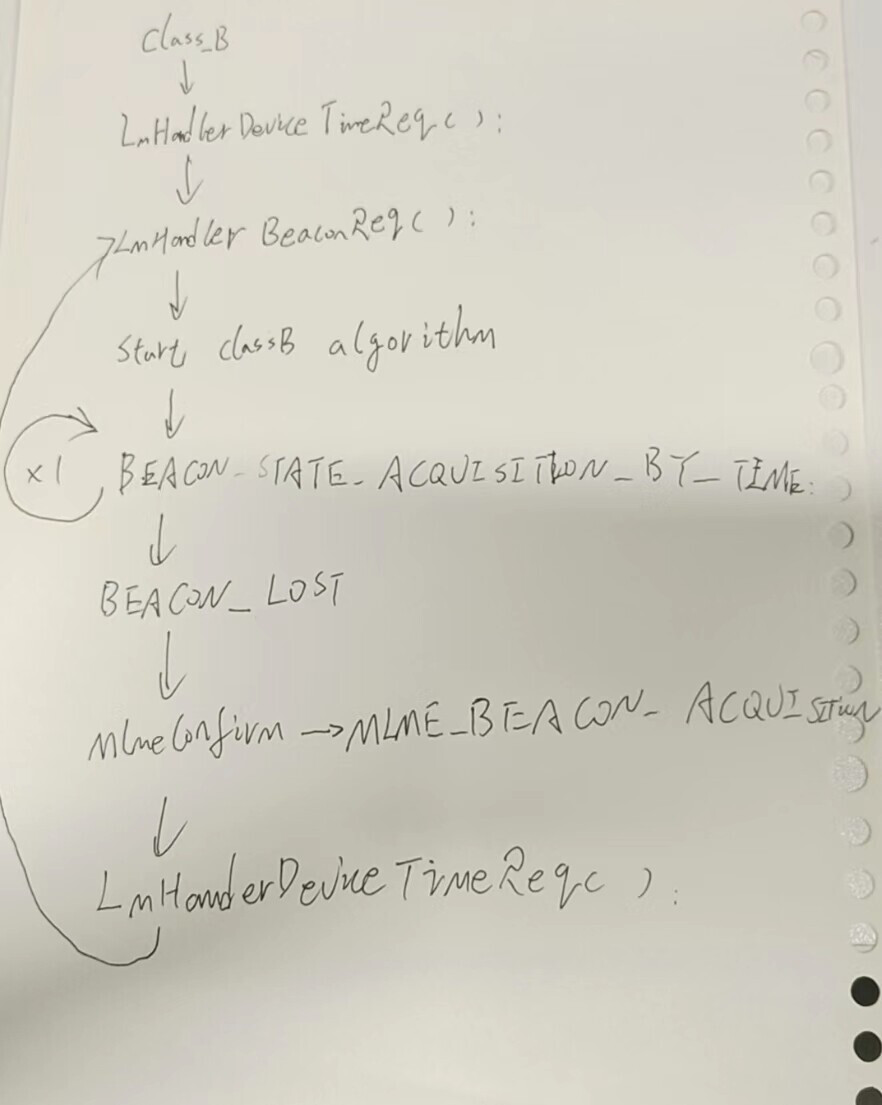 Class_B
↓
LmHandlerDeviceTimeReq( );
↓
LmHandler BeaconReq( );
↓
Start classB algorithm
↓
×1 BEACON_STATE_ACQUISITION_BY_TIME:
↓
BEACON_LOST
↓
MlmeConfirm → MLME_BEACON_ACQUISITION
↓
LmHanderDeviceTimeReq( );